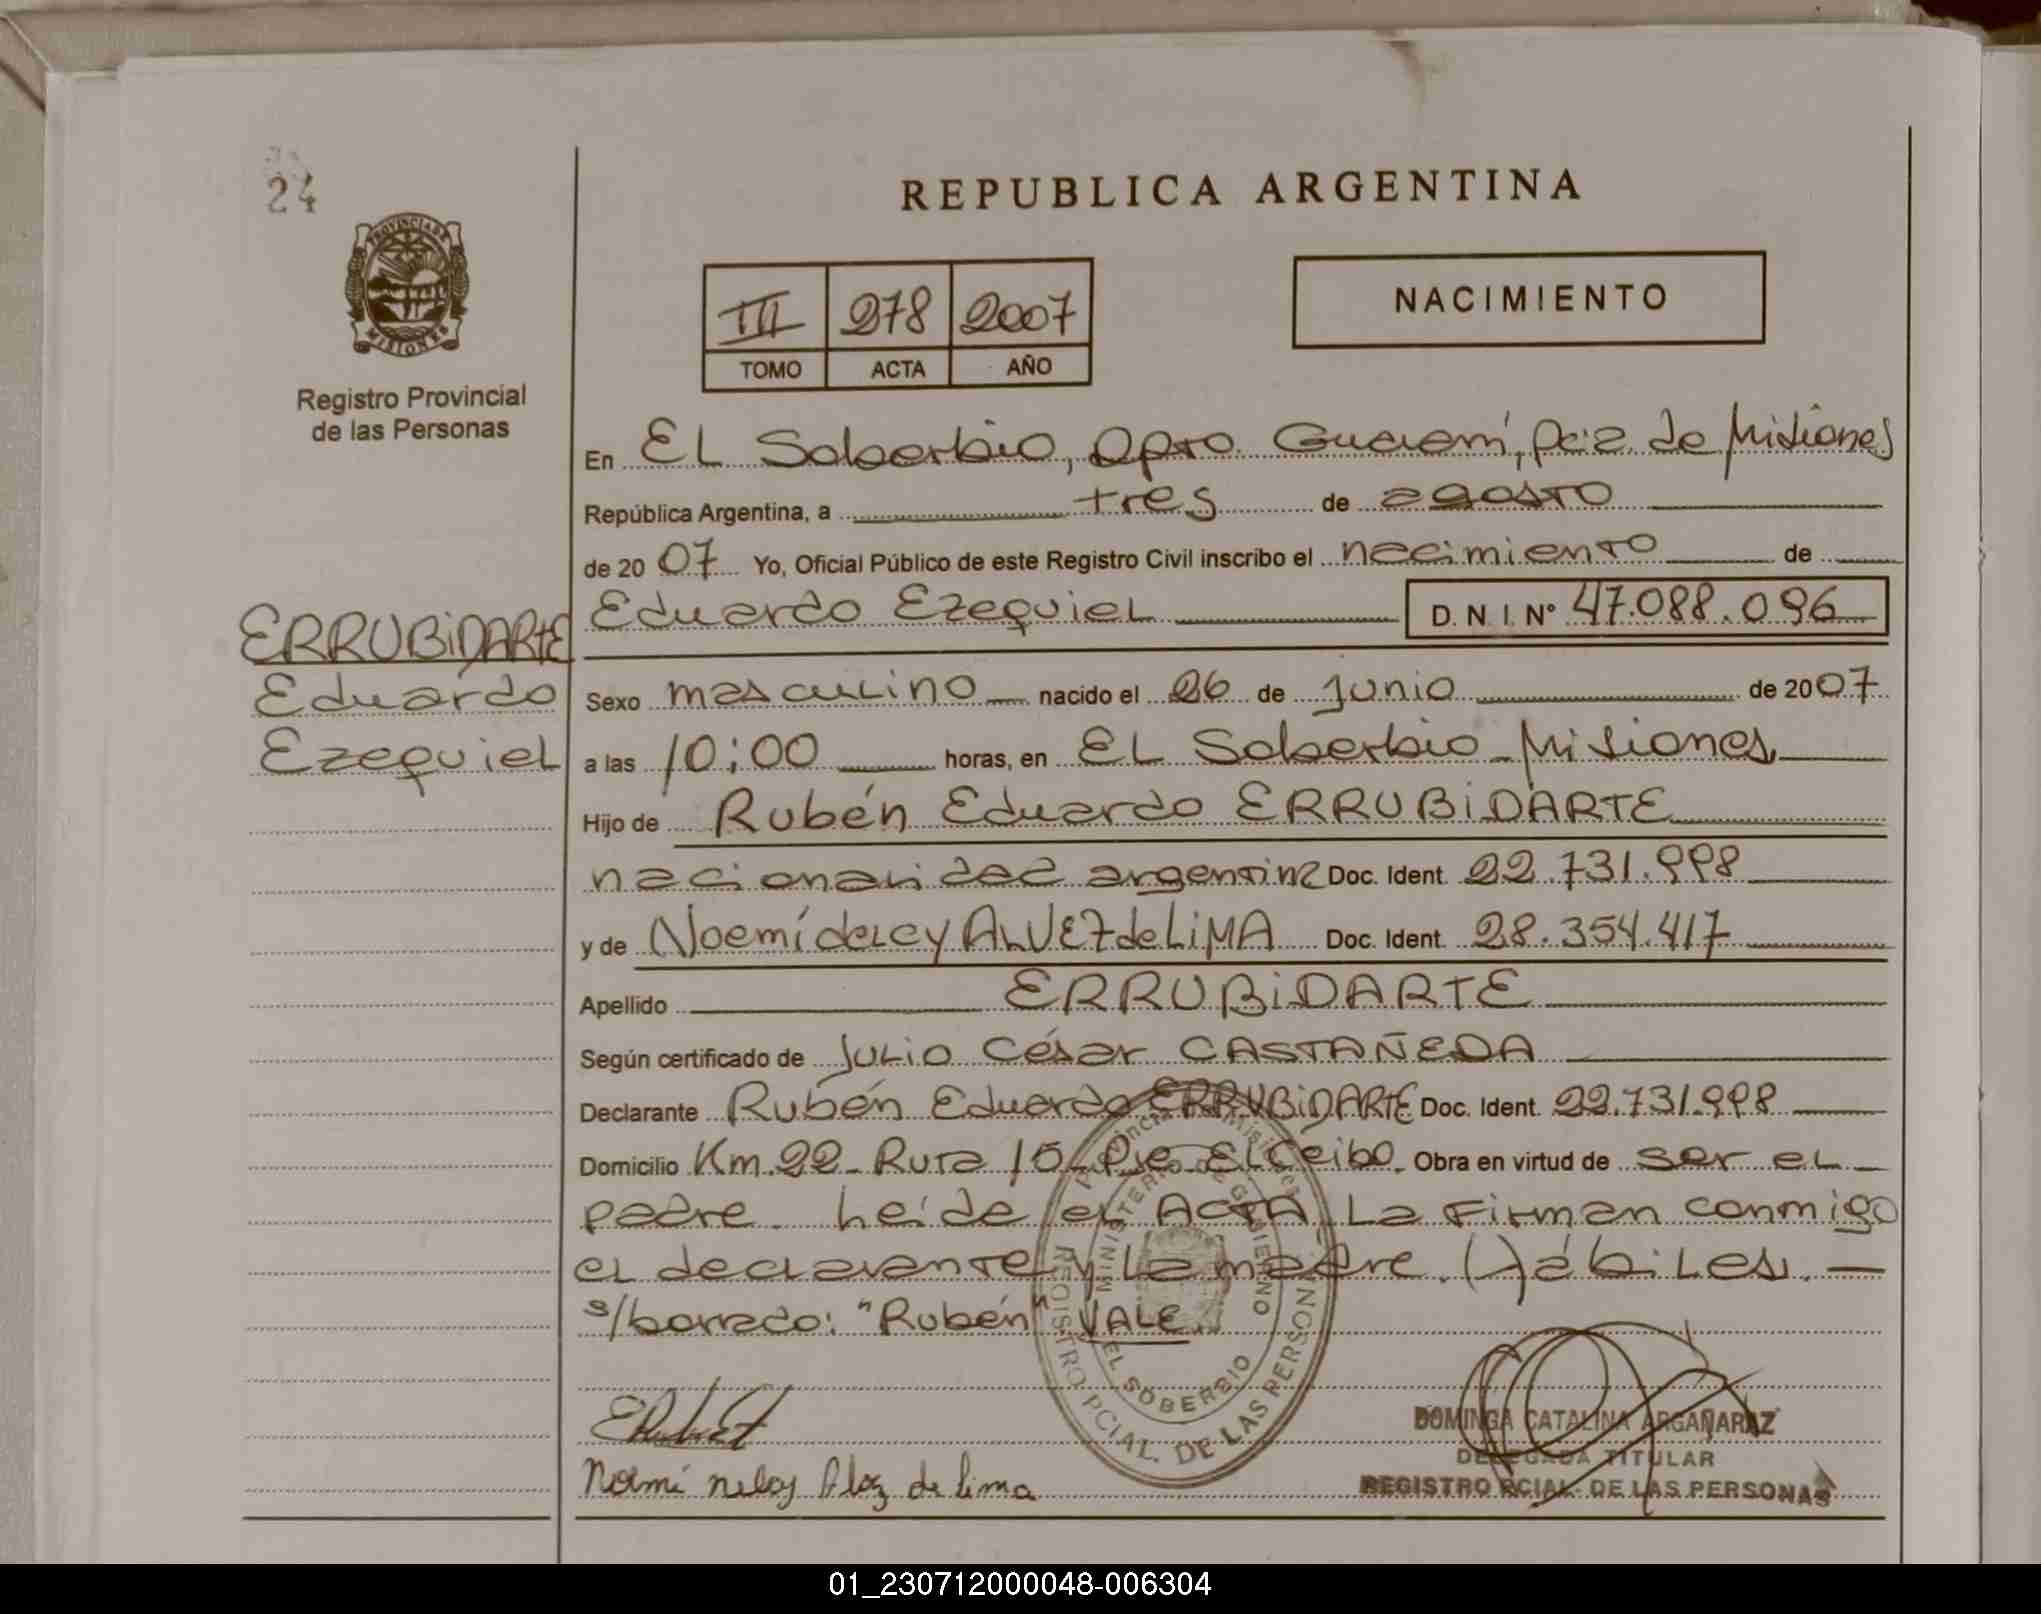 24
PROVINCIA DE
MISIONES
Registro Provincial
de las Personas
REPUBLICA ARGENTINA
III 278 2007
TOMO ACTA AÑO
NACIMIENTO
En EL Soberbio, Dpto. Guaraní, Pcia. de Misiones
República Argentina, a tres de agosto
de 2007 Yo, Oficial Público de este Registro Civil inscribo el nacimiento de
Eduardo Ezequiel D. N. I. Nº 47.088.096
ERRUBiDARTE
Eduardo
Ezequiel
Sexo masculino nacido el 26 de junio de 2007
a las 10:00 horas, en EL Soberbio - Misiones
Hijo de Rubén Eduardo ERRUBiDARTE
nacionalidad argentina Doc. Ident. 22.731.998
y de Noemí delcy ALVEZ de LiMA Doc. Ident. 28.354.417
Apellido ERRUBiDARTE
Según certificado de Julio César CASTAÑEDA
Declarante Rubén Eduardo ERRUBiDARTE Doc. Ident. 22.731.998
Domicilio Km. 22 - Ruta 15 - Pje El Ceibo. Obra en virtud de ser el
padre. Leída el ACTA La Firman conmigo
el declarante y La madre. Hábiles. —
s/borrado: "Rubén" VALE.
Provincia de Misiones
MINISTERIO DE GOBIERNO
EL SOBERBIO
REGISTRO PCIAL. DE LAS PERSONAS
de Lima
DOMINGA CATALINA ARGAÑARAZ
DELEGADA TITULAR
REGISTRO PCIAL. DE LAS PERSONAS
01_230712000048-006304